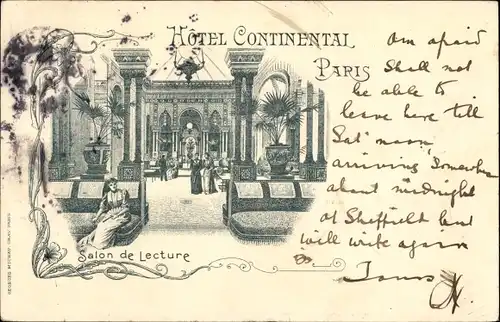 HÔTEL CONTINENTAL
PARIS
Salon de Lecture
Am afraid
Shall not
be able to
leave here till
Sat noon
arriving Somewhere
about midnight
at Sheffield but
will write again
Yours